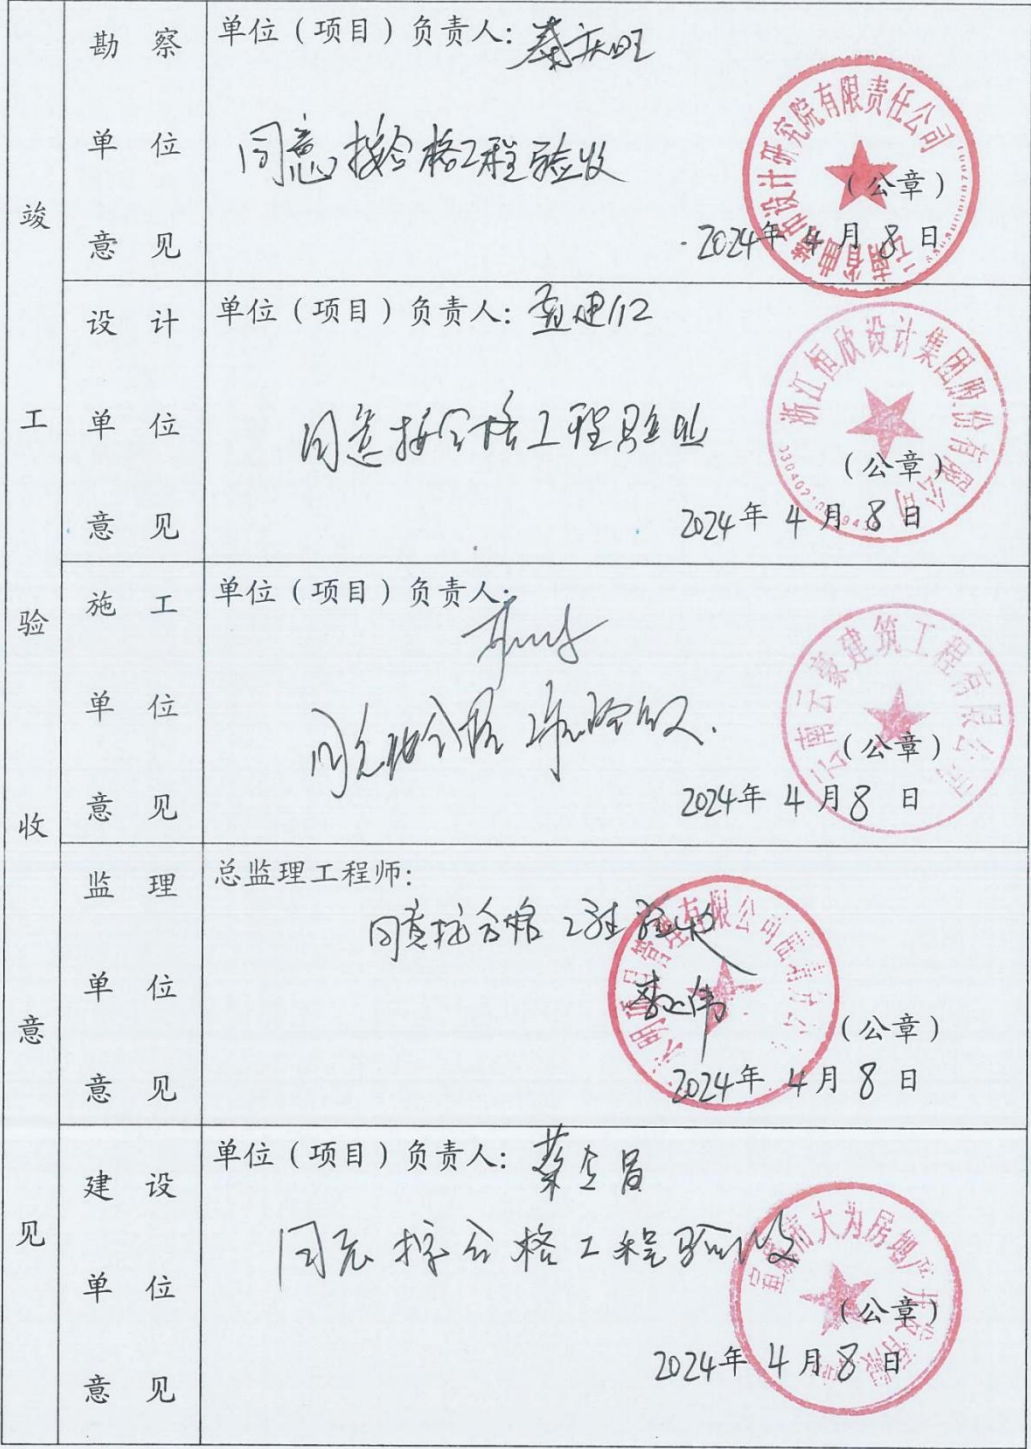 竣工验收意见
勘察单位意见
单位（项目）负责人：秦庆旺
同意按合格工程验收
云南省曲靖市设计研究院有限责任公司
（公章）
2024年4月8日
设计单位意见
单位（项目）负责人：
同意按合格工程验收
浙江恒欣设计集团股份有限公司
（公章）
2024年4月8日
施工单位意见
单位（项目）负责人：
同意按合格工程验收.
云南云豪建筑工程有限公司
（公章）
2024年4月8日
监理单位意见
总监理工程师：
同意按合格工程验收
永明项目管理有限公司曲靖分公司
（公章）
2024年4月8日
建设单位意见
单位（项目）负责人：
同意按合格工程验收
宣威市大为房地产开发有限
（公章）
2024年4月8日